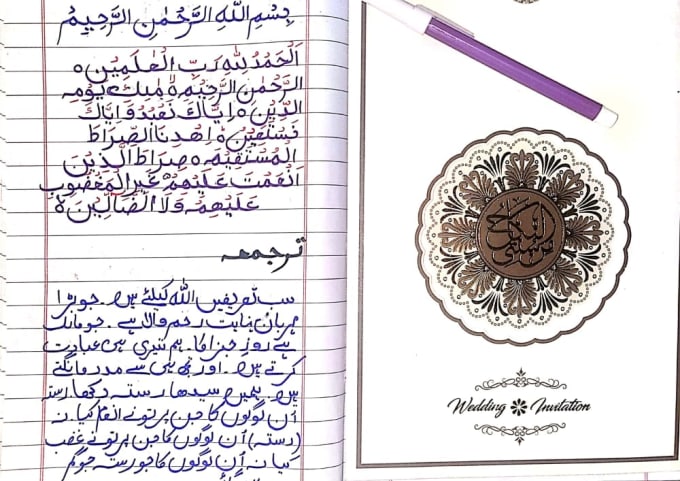 بِسْمِ اللهِ الرَّحْمٰنِ الرَّحِيْمِ
اَلْحَمْدُ لِلّٰهِ رَبِّ الْعٰلَمِيْنَ ہ
الرَّحْمٰنِ الرَّحِيْمِ ہ مٰلِكِ يَوْمِ
الدِّيْنِ ہ اِيَّاكَ نَعْبُدُ وَ اِيَّاكَ
نَسْتَعِيْنُ ہ اِهْدِنَا الصِّرَاطَ
الْمُسْتَقِيْمَ ہ صِرَاطَ الَّذِيْنَ
اَنْعَمْتَ عَلَيْهِمْ غَيْرِ الْمَغْضُوْبِ
عَلَيْهِمْ وَلَا الضَّالِّيْنَ ہ
ترجمعہ
سب تعریفیں اللہ کیلئے ہیں ۔ جو بڑا
مہربان نہایت رحم والا ہے ۔ جو مالک
ہے روزِ جزا کا ۔ ہم تیری ہی عبادت
کرتے ہیں ۔ اور تجھ ہی سے مدد مانگتے
ہیں ۔ ہمیں سیدھا رستہ دکھا رستہ
اُن لوگوں کا جن پر تو نے انعام کیا ۔ نہ
(رستہ) اُن لوگوں کا جن پر تو نے غضب
کیا نہ اُن لوگوں کا جو رستہ جو گم
النکاح من سنتی
Wedding Invitation